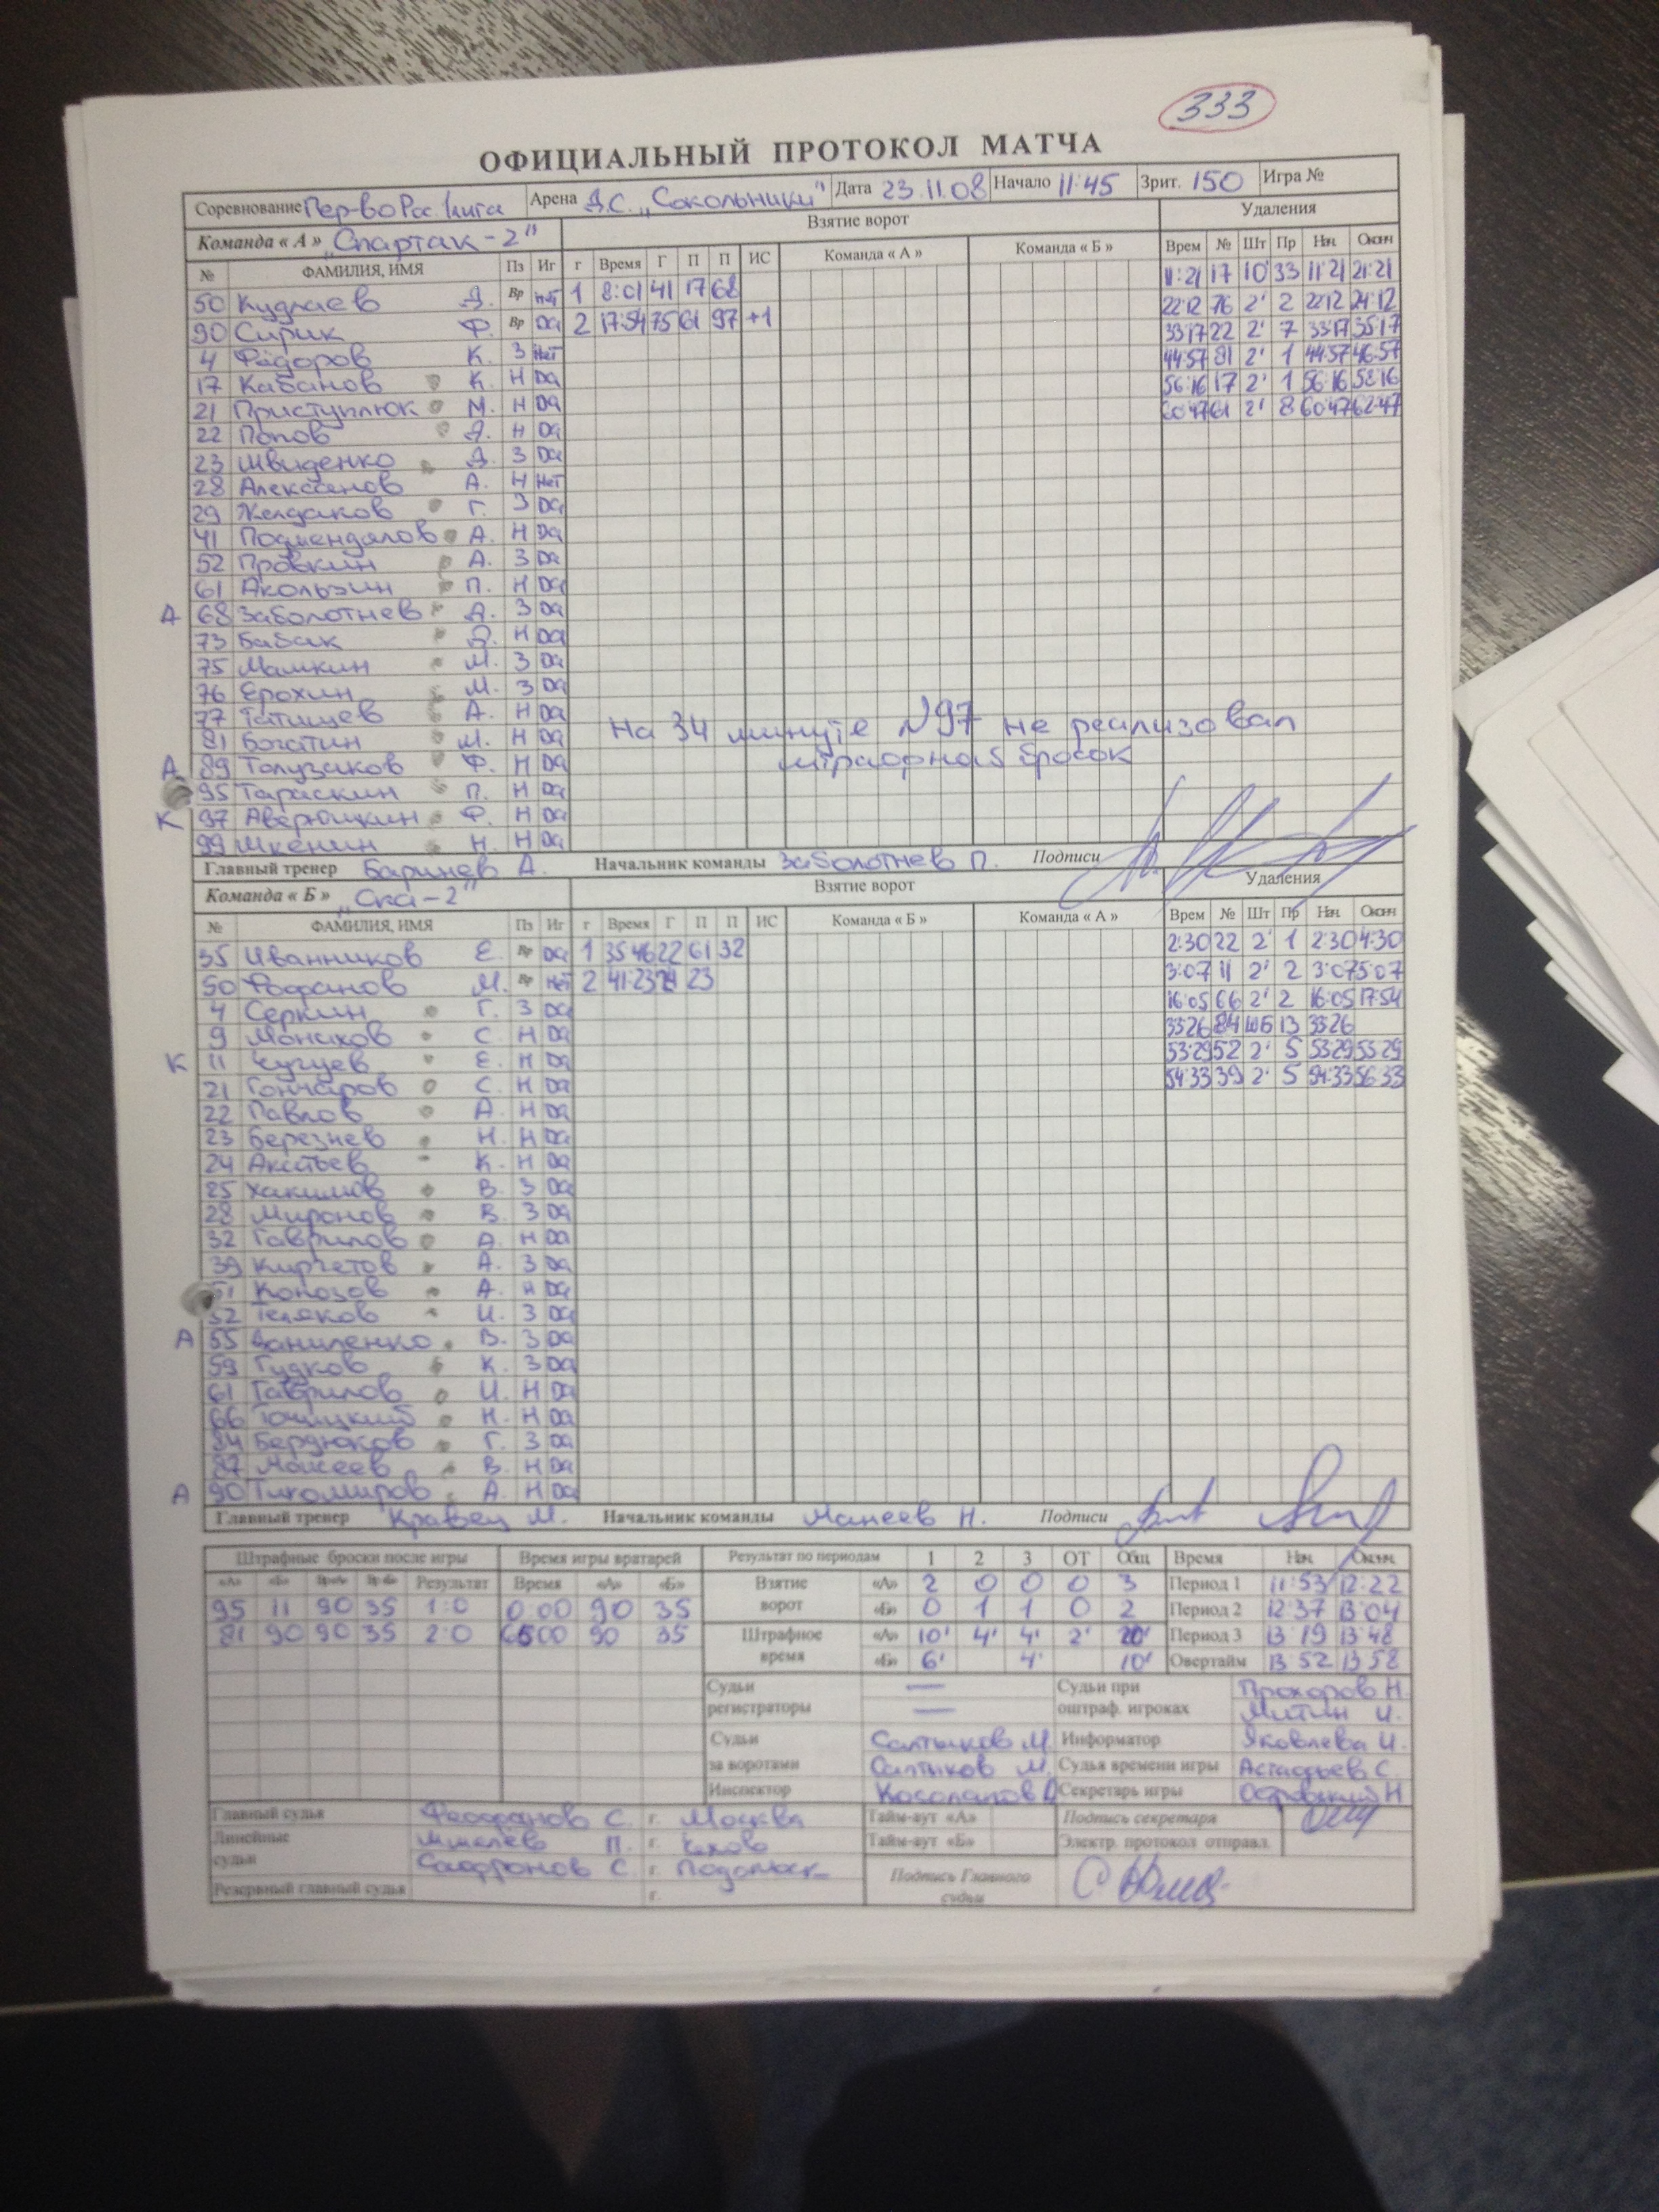 333
ОФИЦИАЛЬНЫЙ ПРОТОКОЛ МАТЧА
Соревнование Пер-во Рос. Арена Д.С. „Сокольники" Дата 23.11.08 Начало 11:45 Зрит. 150 Игра №
Команда « А » „Спартак-2" Взятие ворот Удаления
№ ФАМИЛИЯ, ИМЯ Пз Иг г Время Г П П ИС Команда « А » Команда « Б » Врем № Шт Пр Нач Оконч
50 Кудлаев Д. Вр нет 1 8:01 41 17 68 11:21 17 10' 33 11:21 21:21
90 Сирик Ф. Вр Да 2 17:54 75 61 97 +1 22:12 76 2' 2 22:12 24:12
4 Фёдоров К. З Нет 33:17 22 2' 7 33:17 35:17
17 Кабанов К. Н Да 44:57 81 2' 1 44:57 46:57
21 Приступлюк М. Н Да 56:16 17 2' 1 56:16 58:16
22 Попов Д. Н Да 60:47 61 2' 8 60:47 62:47
23 Швиденко Д. З Да
28 Алексеенов А. Н Нет
29 Желдаков Г. З Да
41 А. Н Да
52 Провкин А. З Да
61 Акользин П. Н Да
А 68 Заболотнев Д. З Да
73 Бабак Д. Н Да
75 Машкин М. З Да
76 Ерохин М. З Да
77 Татищев А. Н Да
81 Богатин М. Н Да
А 89 Толузаков Ф. Н Да
95 Тараскин П. Н Да
К 97 Аверюшкин Ф. Н Да
99 Шкенин Н. Н Да
На 34 минуте №97 не реализовал
штрафной бросок
Главный тренер Баринев А. Начальник команды Заболотнев П. Подписи
Команда « Б » „Ска-2" Взятие ворот Удаления
№ ФАМИЛИЯ, ИМЯ Пз Иг г Время Г П П ИС Команда « Б » Команда « А » Врем № Шт Пр Нач Оконч
35 Иванников Е. Вр Да 1 35:46 22 61 32 2:30 22 2' 1 2:30 4:30
50 М. Вр Нет 2 41:23 23 3:07 11 2' 2 3:07 5:07
4 Серкин Г. З Да 16:05 66 2' 2 16:05 17:54
9 Монахов С. Н Да 33:26 84 ШБ 13 33:26
К 11 Чугуев Е. Н Да 53:29 52 2' 5 53:29 53:29
21 Гончаров С. Н Да 54:33 39 2' 5 54:33 56:33
22 Павлов А. Н Да
23 Березнев Н. Н Да
24 К. Н Да
25 Хакимов В. З Да
28 Миронов В. З Да
32 Гаврилов А. Н Да
39 Киргетов А. З Да
51 Конозов А. Н Да
52 Теляков И. З Да
А 55 Даниленко В. З Да
59 Гудков К. З Да
61 Гаврилов И. Н Да
66 Н. Н Да
84 Бердюков Г. З Да
87 Моисеев В. Н Да
А 90 Тихомиров А. Н Да
Главный тренер Кравец М. Начальник команды Манеев Н. Подписи
Штрафные броски после игры Время игры вратарей Результат по периодам 1 2 3 ОТ Общ Время Нач Оконч
«А» «Б» Вр«А» Вр«Б» Результат Время «А» «Б» Взятие ворот «А» 2 0 0 0 3 Период 1 11:53 12:22
95 11 90 35 1:0 0:00 90 35 «Б» 0 1 1 0 2 Период 2 12:37 13:04
81 90 90 35 2:0 65:00 90 35 Штрафное время «А» 10' 4' 4' 2' 20' Период 3 13 19 13 48
«Б» 6' 4' 10' Овертайм 13 52 13 58
Судьи регистраторы — — Судьи при оштраф. игроках Прохоров Н.
Митин И.
Судьи за воротами Салтыков М. Информатор Яковлева И.
Салтыков М. Судья времени игры Астафьев С.
Инспектор Косолапов Секретарь игры Островский Н
Главный судья Феофанов С. г. Москва Тайм-аут «А» Подпись секретаря
Линейные судьи Шмелёв П. г. Чехов Тайм-аут «Б» Электр. протокол отправл.
Сафронов С. г. Подольск Подпись Главного судьи
Резервный главный судья г.